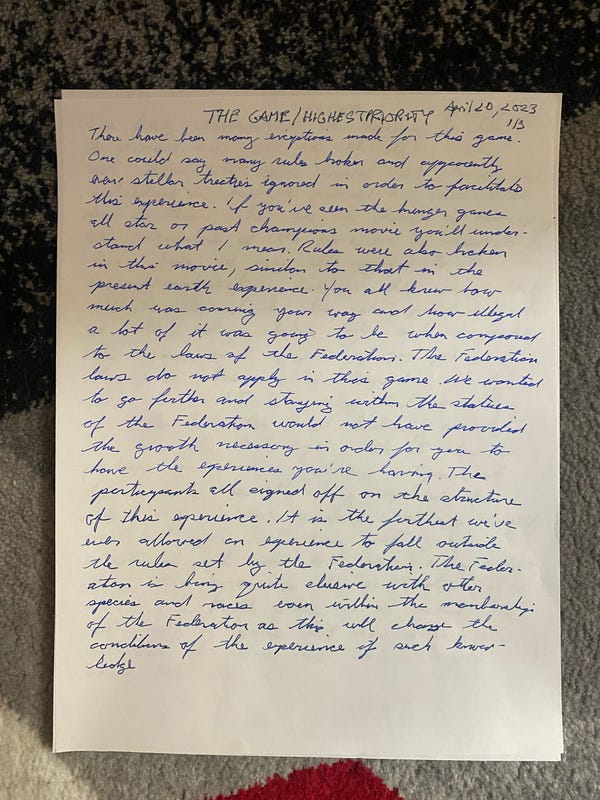 THE GAME/HIGHEST PRIORITY April 20, 2023
1/3
There have been many exceptions made for this game.
One could say many rules broken and apparently
even stellar treaties ignored in order to facilitate
this experience. If you've seen the hunger games
all star or past champions movie you'll under-
stand what I mean. Rules were also broken
in this movie, similar to that in the
present earth experience. You all knew how
much was coming your way and how illegal
a lot of it was going to be when compared
to the laws of the Federation. The Federation
laws do not apply in this game. We wanted
to go further and staying within the statues
of the Federation would not have provided
the growth necessary in order for you to
have the experiences you're having. The
participants all signed off on the structure
of this experience. It is the furthest we've
ever allowed an experience to fall outside
the rules set by the Federation. The Feder-
ation is being quite elusive with other
species and races even within the membership
of the Federation as this will change the
conditions of the experience if such know-
ledge